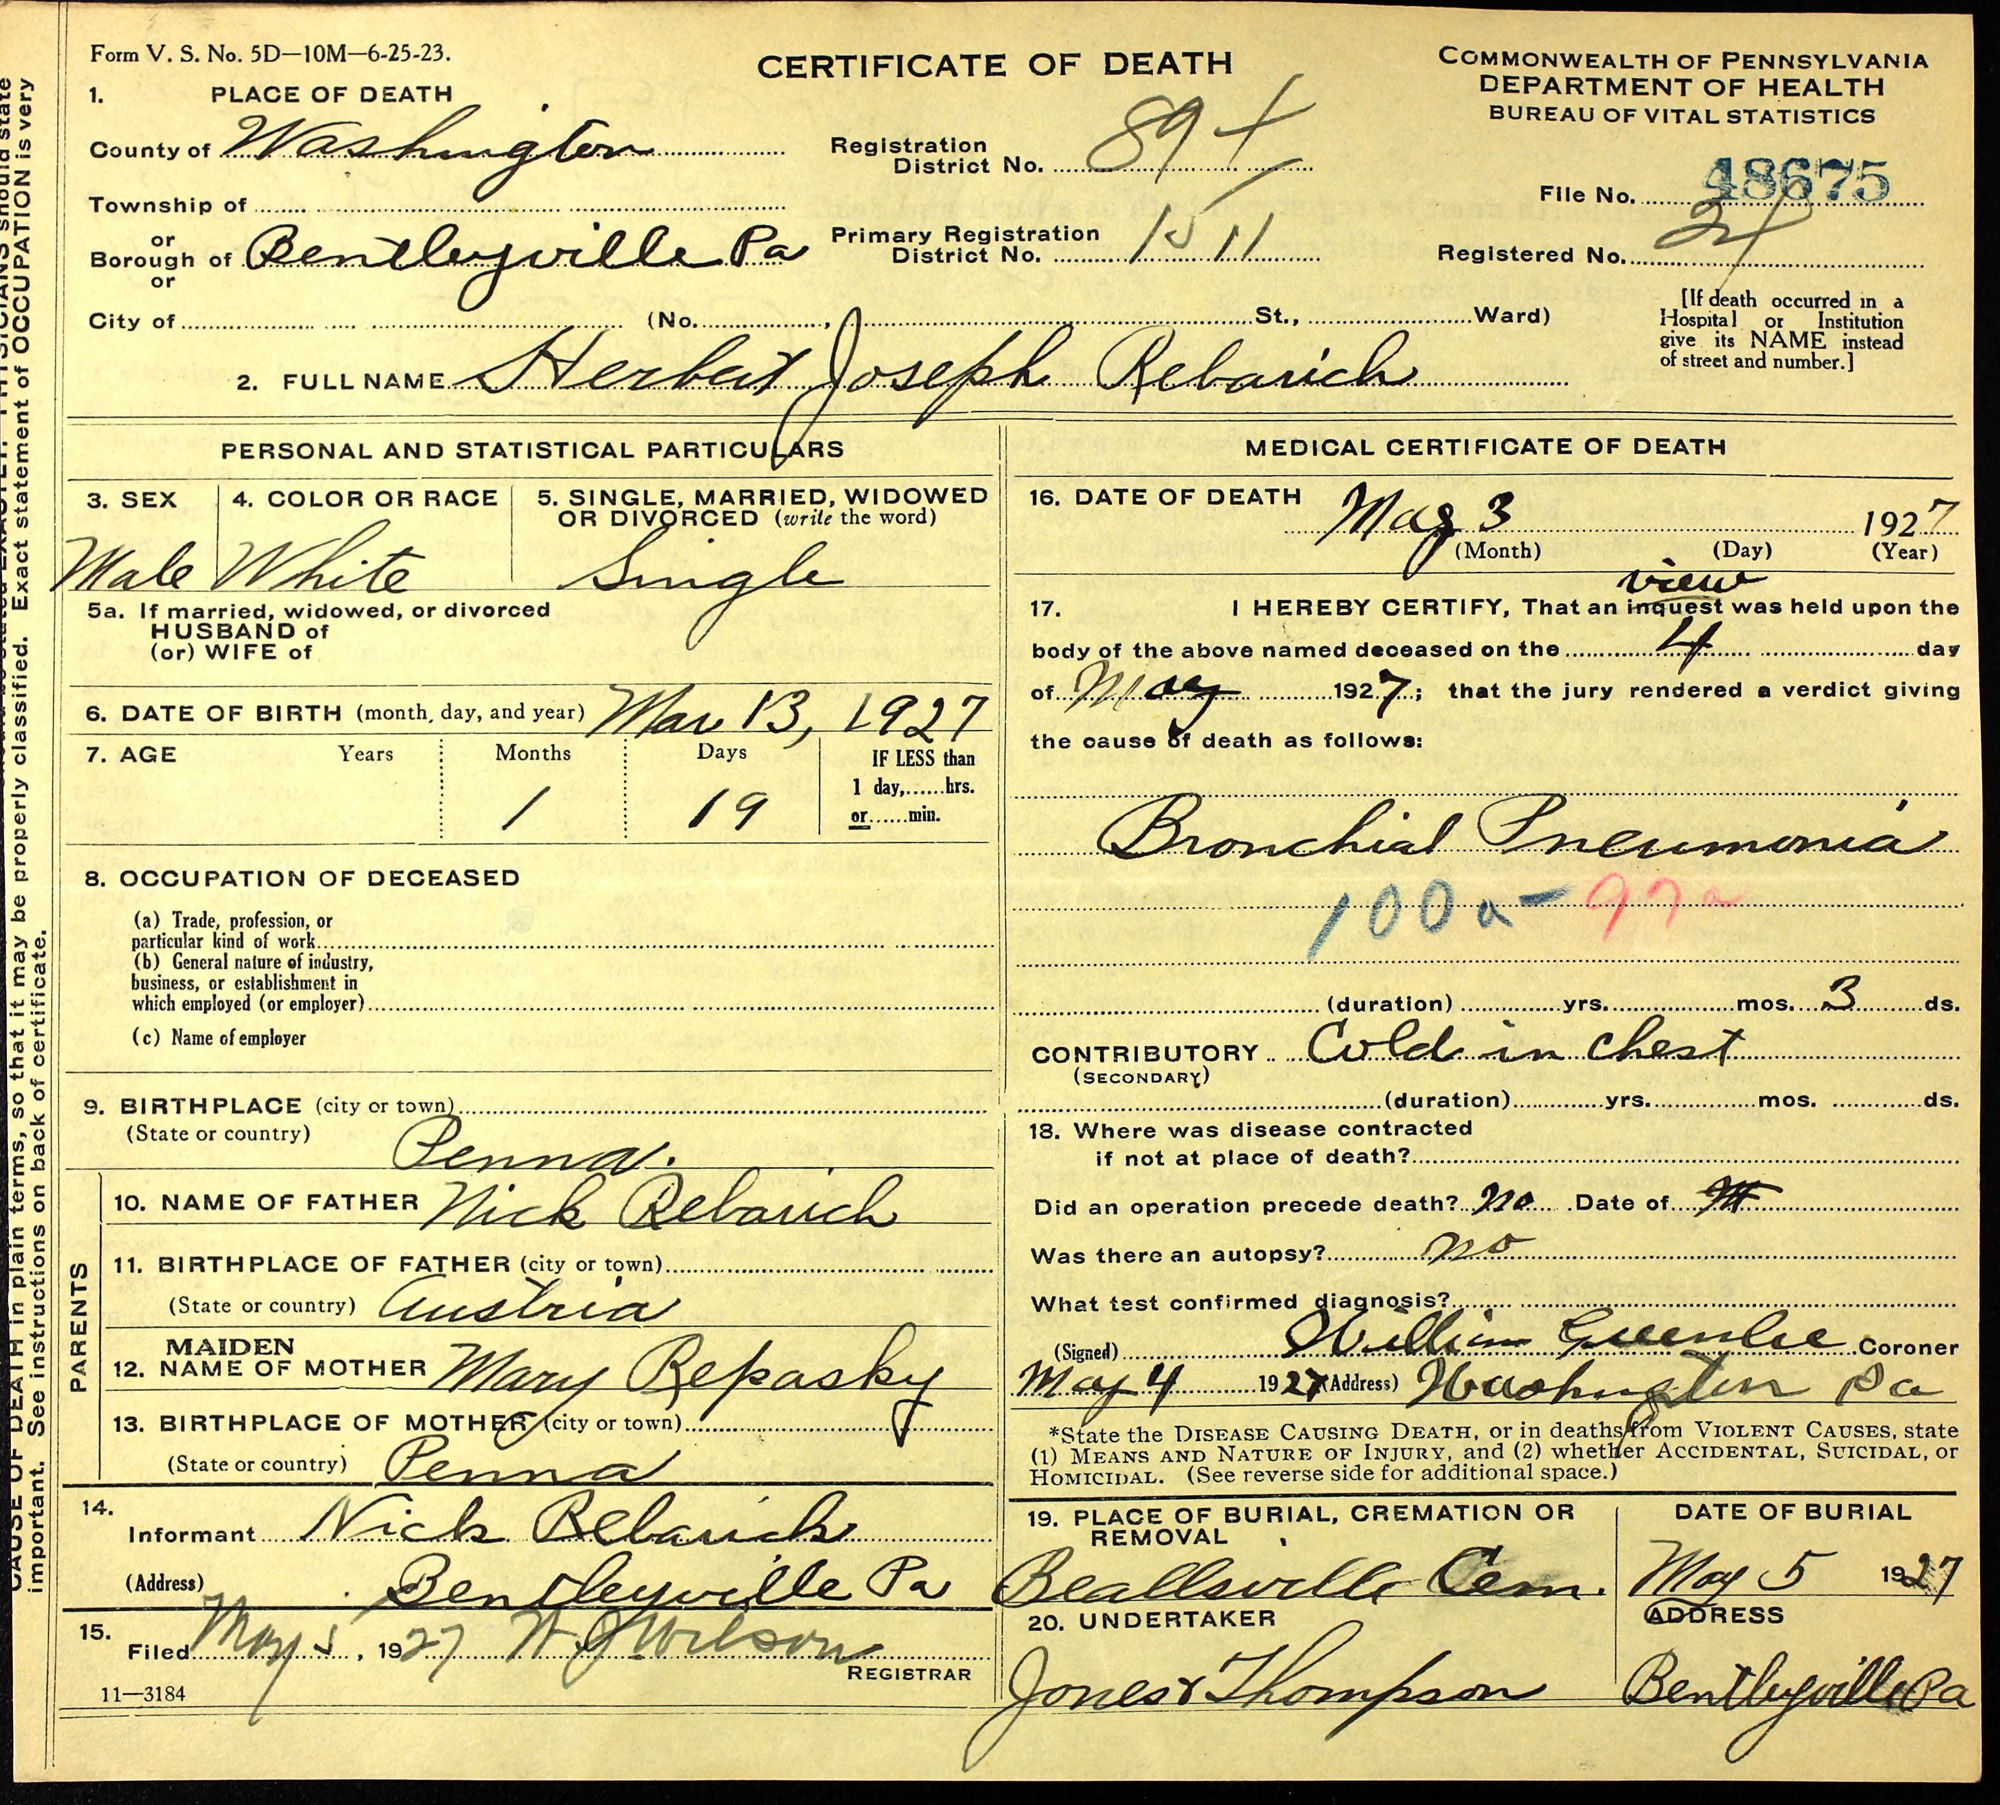 Form V. S. No. 5D—10M—6-25-23.
CERTIFICATE OF DEATH
COMMONWEALTH OF PENNSYLVANIA
DEPARTMENT OF HEALTH
BUREAU OF VITAL STATISTICS
1. PLACE OF DEATH
County of Washington
Registration District No. 894
File No. 48675
Township of
or
Borough of Bentleyville Pa
or
Primary Registration District No. 1511
Registered No. 24
City of (No. , St., Ward)
[If death occurred in a
Hospital or Institution
give its NAME instead
of street and number.]
2. FULL NAME Herbert Joseph Rebarich
PERSONAL AND STATISTICAL PARTICULARS
3. SEX
Male
4. COLOR OR RACE
White
5. SINGLE, MARRIED, WIDOWED
OR DIVORCED (write the word)
Single
5a. If married, widowed, or divorced
HUSBAND of
(or) WIFE of
6. DATE OF BIRTH (month, day, and year) Mar 13, 1927
7. AGE Years Months Days
1 19
IF LESS than
1 day,......hrs.
or......min.
8. OCCUPATION OF DECEASED
(a) Trade, profession, or
particular kind of work
(b) General nature of industry,
business, or establishment in
which employed (or employer)
(c) Name of employer
9. BIRTHPLACE (city or town)
(State or country)
Penna.
PARENTS
10. NAME OF FATHER Nick Rebarich
11. BIRTHPLACE OF FATHER (city or town)
(State or country) Austria
MAIDEN
12. NAME OF MOTHER Mary Repasky
13. BIRTHPLACE OF MOTHER (city or town)
(State or country) Penna
14.
Informant Nick Rebarich
(Address) Bentleyville Pa
15.
Filed May 5, 1927 W. J. Wilson
REGISTRAR
11—3184
MEDICAL CERTIFICATE OF DEATH
16. DATE OF DEATH May 3 1927
(Month) (Day) (Year)
view
17. I HEREBY CERTIFY, That an inquest was held upon the
body of the above named deceased on the 4 day
of May 1927; that the jury rendered a verdict giving
the cause of death as follows:
Bronchial Pneumonia
100a-97a
(duration) yrs. mos. 3 ds.
CONTRIBUTORY Cold in chest
(SECONDARY)
(duration) yrs. mos. ds.
18. Where was disease contracted
if not at place of death?
Did an operation precede death? no Date of
Was there an autopsy? no
What test confirmed diagnosis?
(Signed) William Greenlee Coroner
May 4 1927 (Address) Washington Pa
*State the DISEASE CAUSING DEATH, or in deaths from VIOLENT CAUSES, state
(1) MEANS AND NATURE OF INJURY, and (2) whether ACCIDENTAL, SUICIDAL, or
HOMICIDAL. (See reverse side for additional space.)
19. PLACE OF BURIAL, CREMATION OR
REMOVAL
Beallsville Cem.
DATE OF BURIAL
May 5 1927
20. UNDERTAKER
Jones & Thompson
ADDRESS
Bentleyville Pa
CAUSE OF DEATH in plain terms, so that it may be properly classified. Exact statement of OCCUPATION is very
important. See instructions on back of certificate.